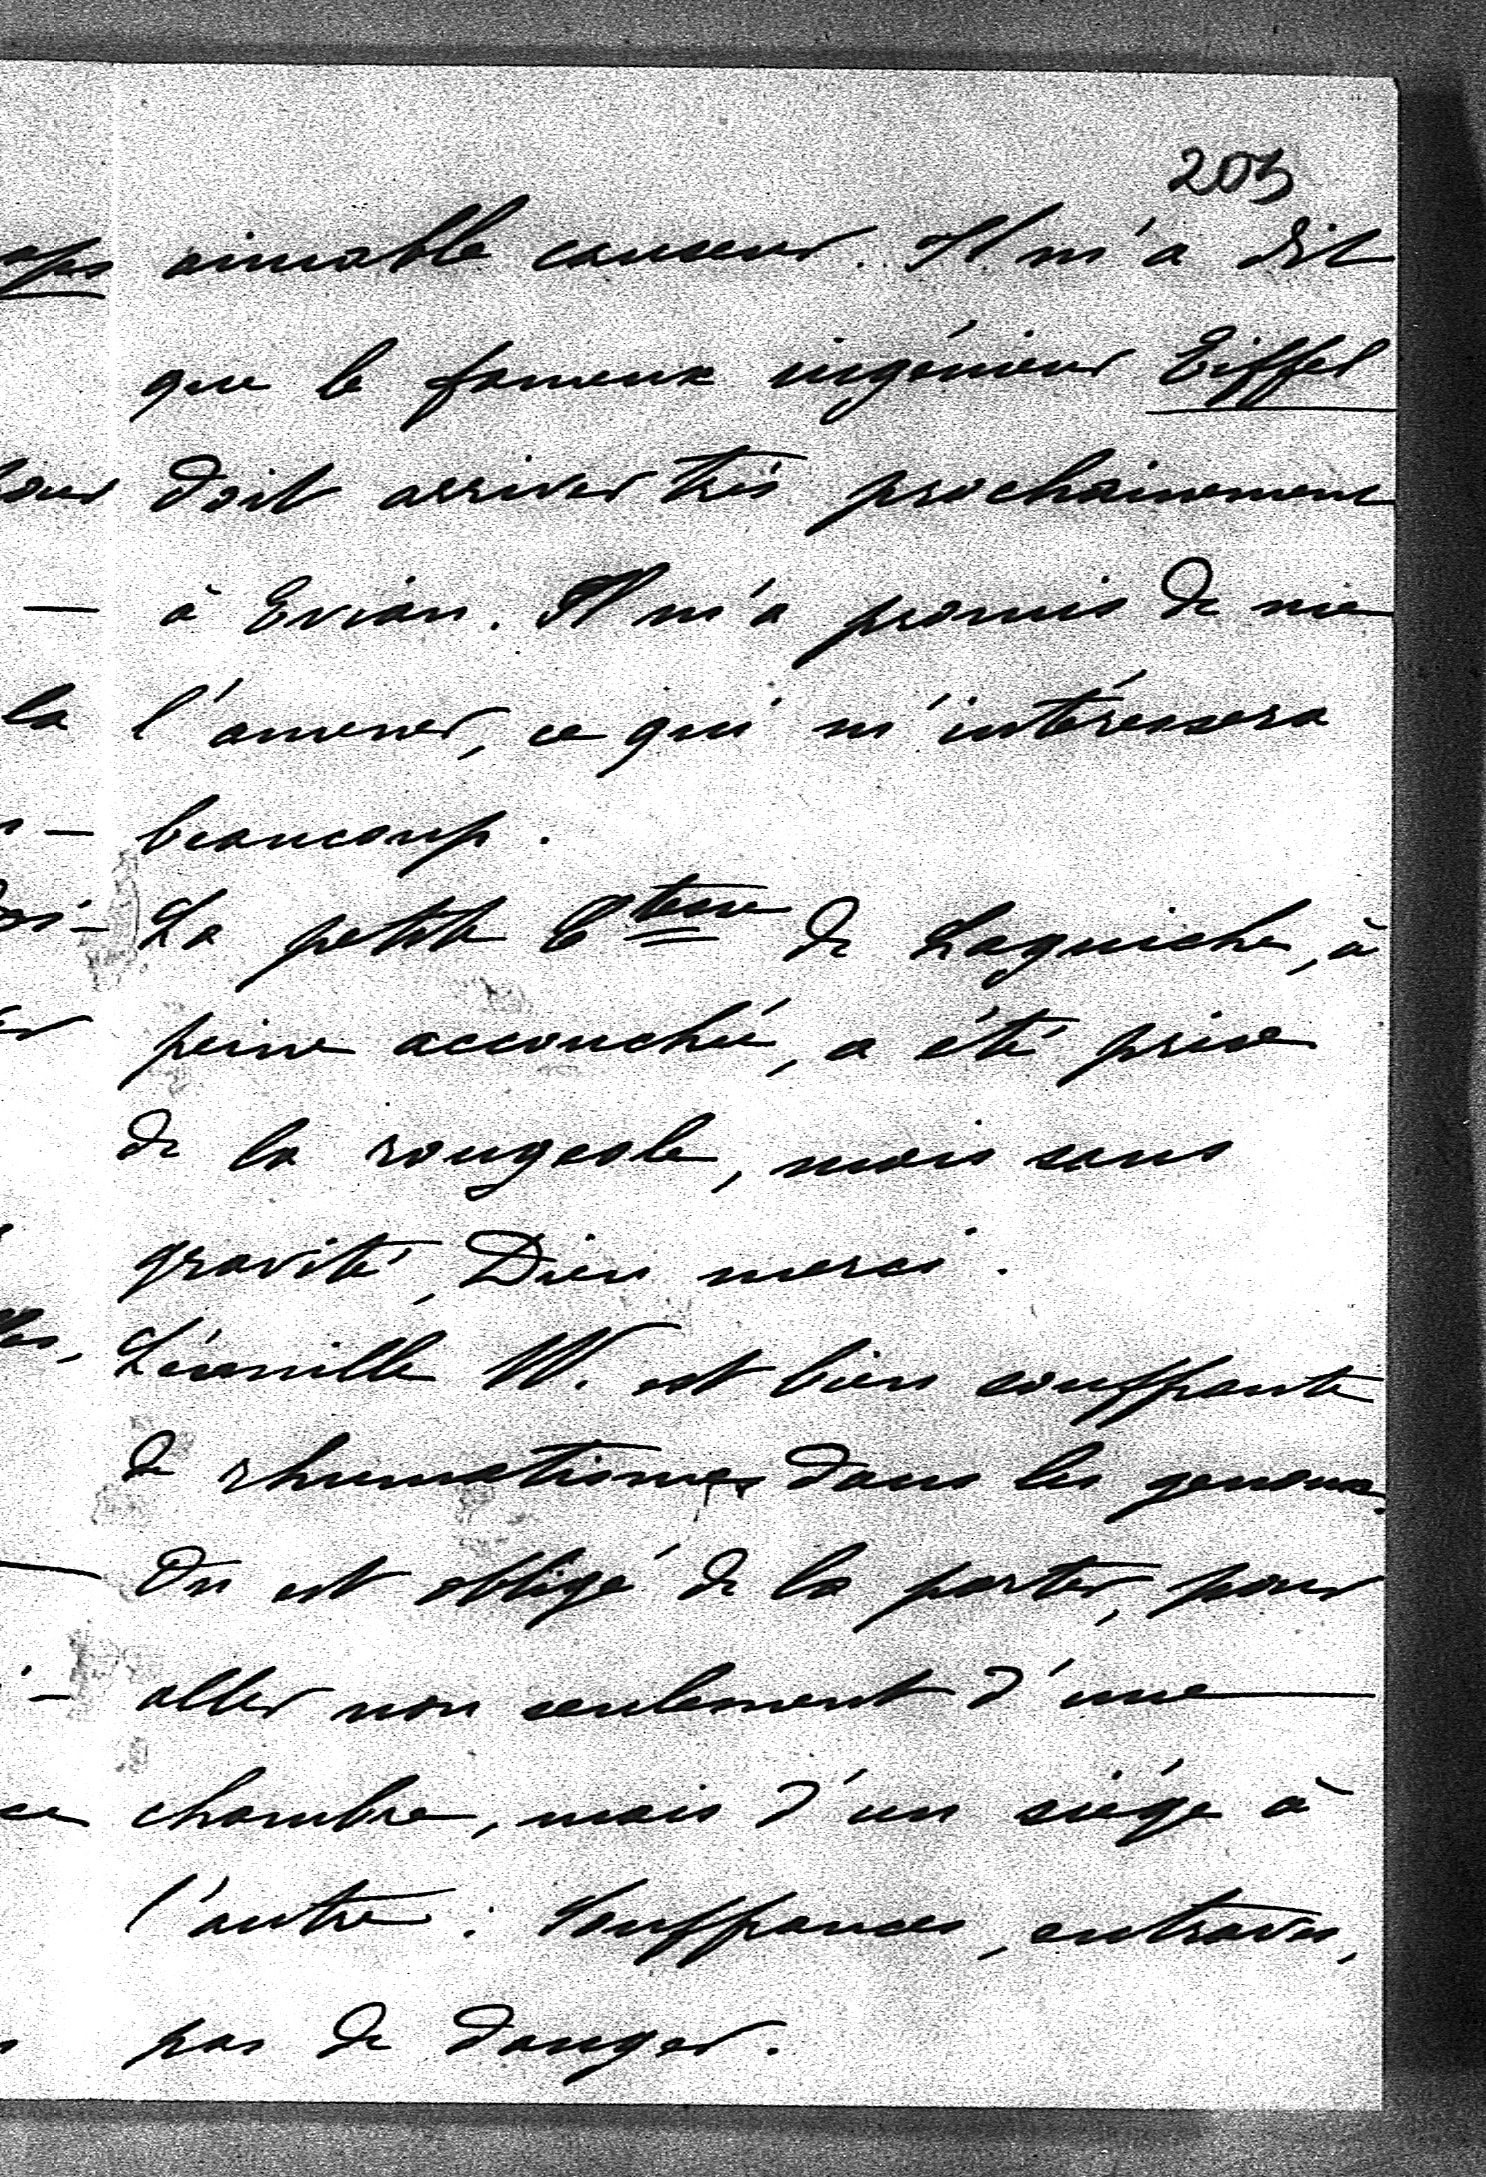 203
aimable causeur. Il m'a dit
que le fameux ingénieur Eiffel
doit arriver très prochainement
à Evian. Il m'a promis de me
la l'amener, ce qui m'intéressera
beaucoup.
La petite Ctesse de Laguiche, à
peine accouchée, a été prise
de la rougeole, mais sans
gravité, Dieu merci.
Léonille W. est bien souffrante
de rhumatismes dans les genoux.
On est obligé de la porter, pour
aller non seulement d'une
chambre, mais d'un siége à
l'autre. Souffrances, entraves,
pas de danger.